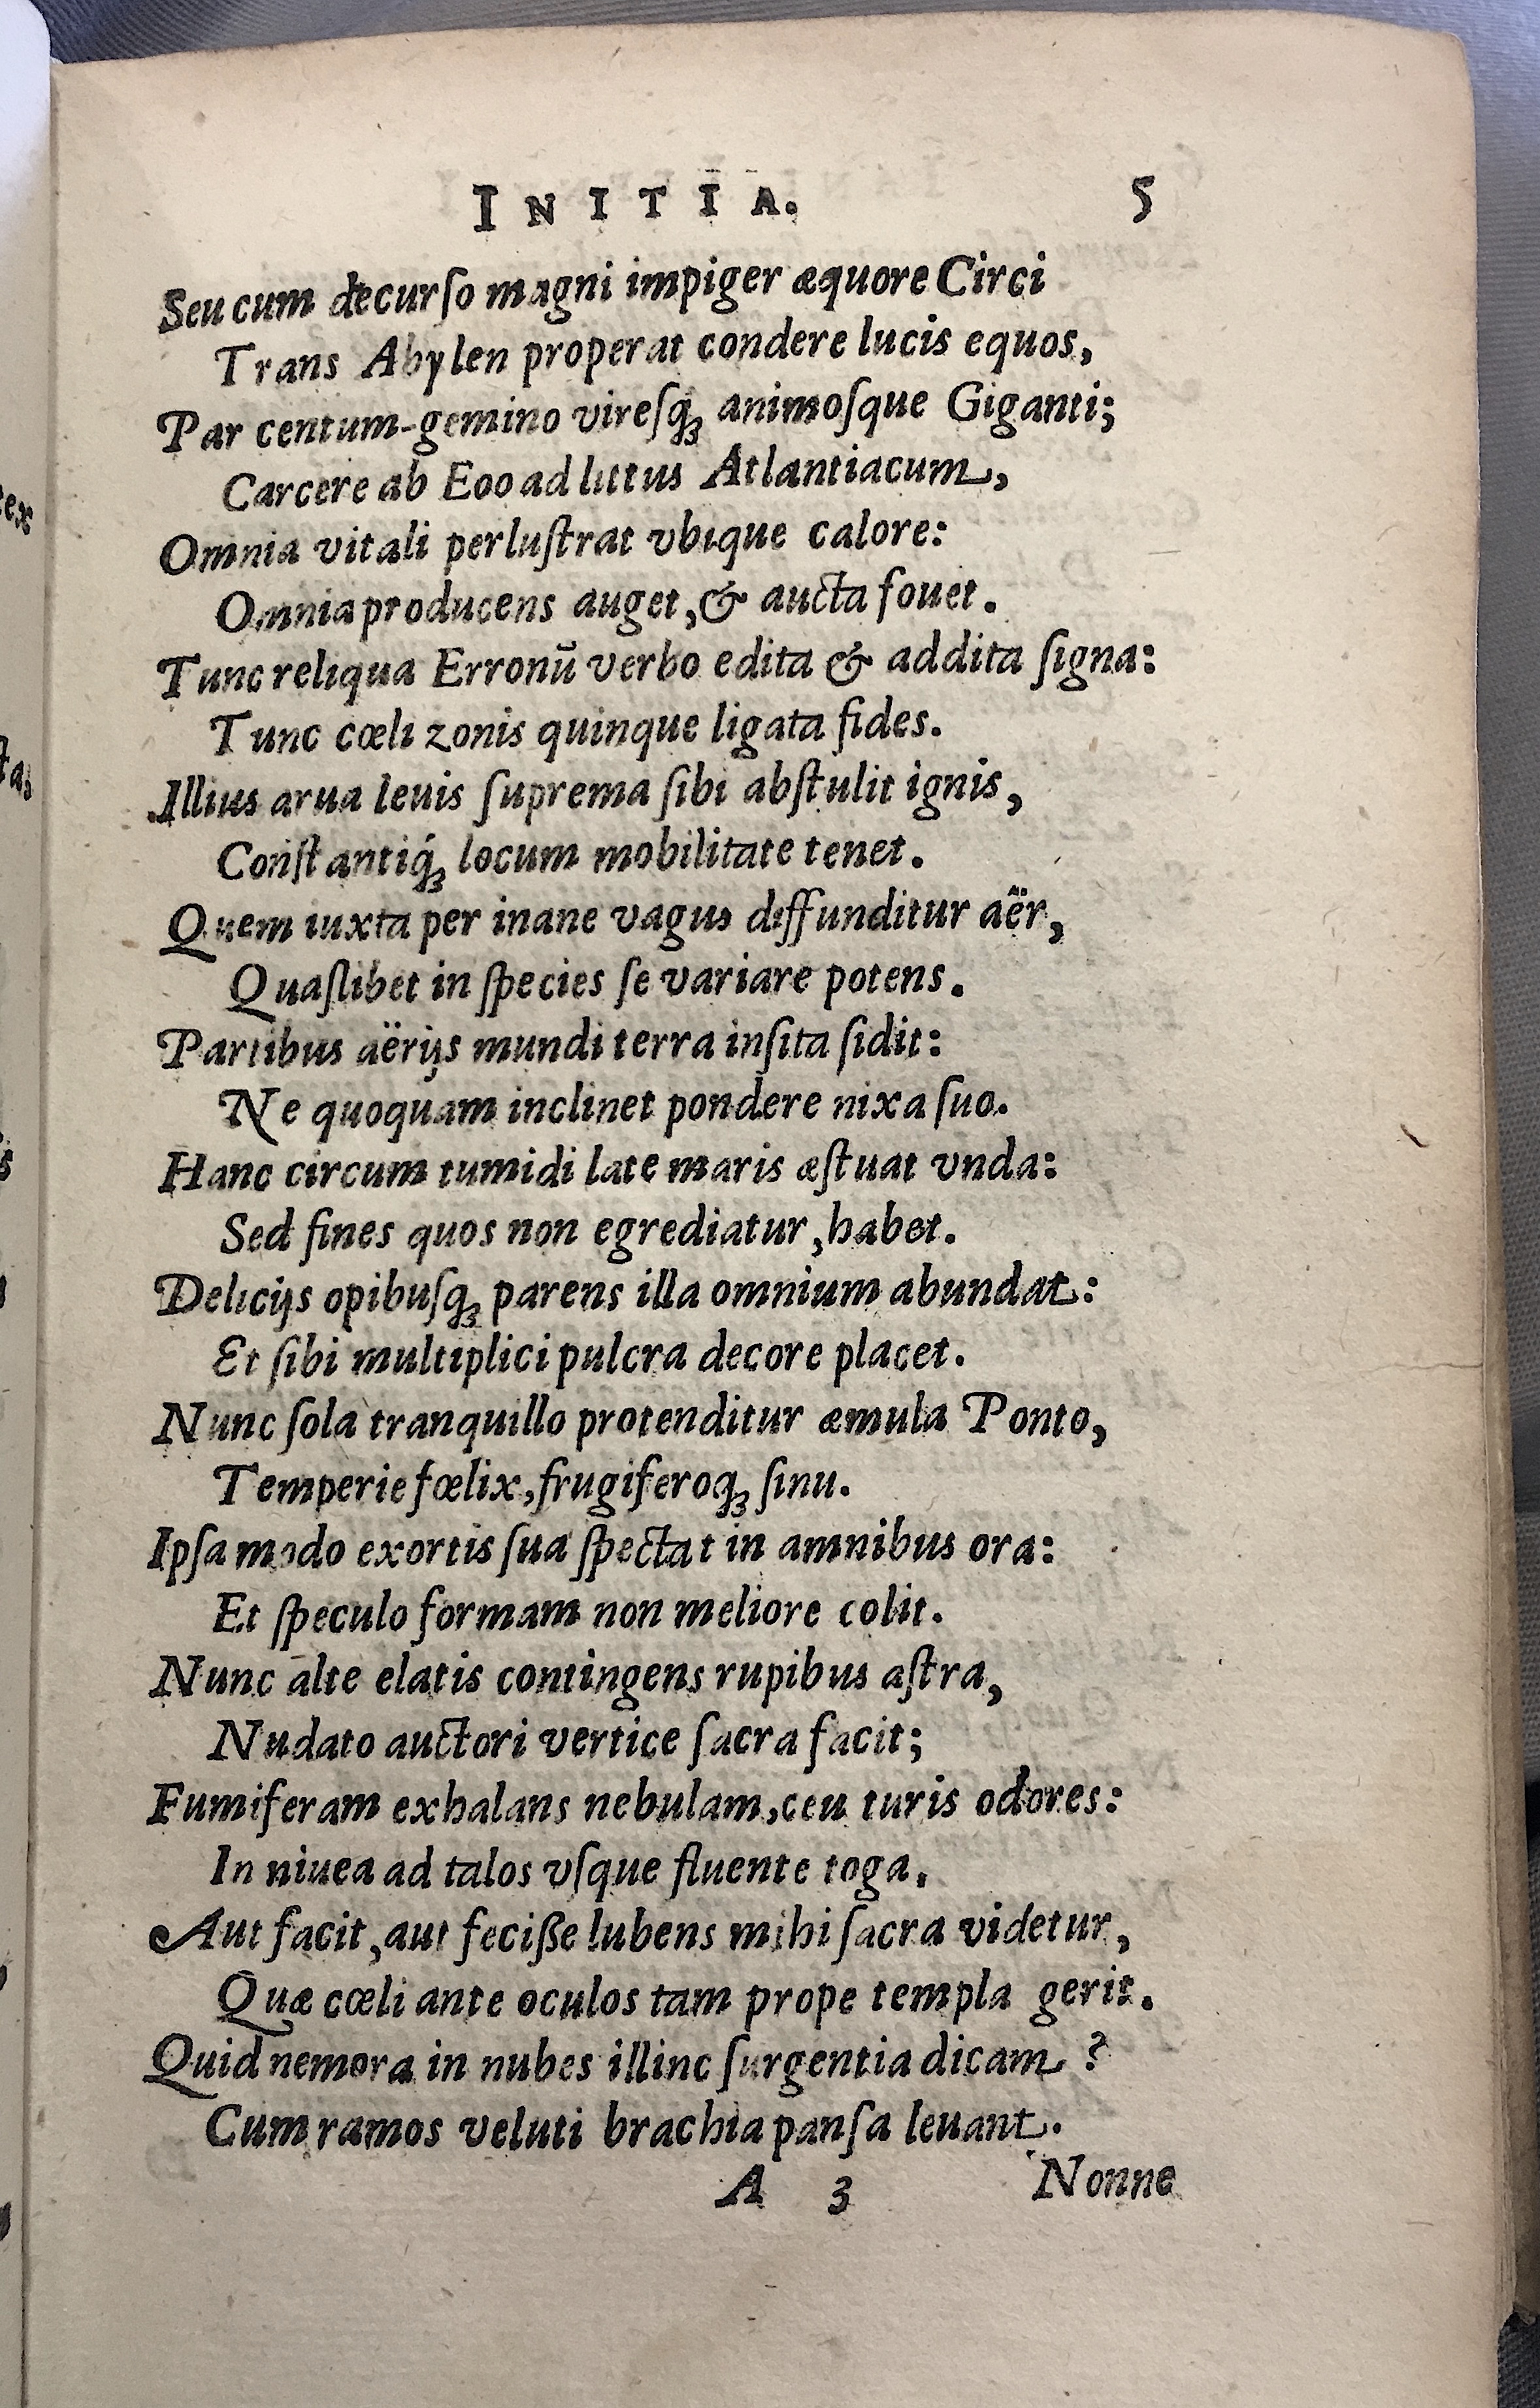 INITIA. 5
Seu cum decurſo magni impiger æquore Circi
Trans Abylen properat condere lucis equos,
Par centum-gemino vireſq́ꝫ animoſque Giganti;
Carcere ab Eoo ad littus Atlantiacum,
Omnia vitali perluſtrat vbique calore:
Omnia producens auget, & aucta fouet.
Tunc reliqua Erronū verbo edita & addita ſigna:
Tunc cœli zonis quinque ligata fides.
Illius arua leuis ſuprema ſibi abſtulit ignis,
Conſtantiq́ꝫ locum mobilitate tenet.
Quem iuxta per inane vagus diffunditur aër,
Quaſlibet in ſpecies ſe variare potens.
Partibus aërijs mundi terra inſita ſidit:
Ne quoquam inclinet pondere nixa ſuo.
Hanc circum tumidi late maris æſtuat vnda:
Sed fines quos non egrediatur, habet.
Delicijs opibuſq́ꝫ parens illa omnium abundat:
Et ſibi multiplici pulcra decore placet.
Nunc ſola tranquillo protenditur æmula Ponto,
Temperie fœlix, frugiferoq́ꝫ ſinu.
Ipſa modo exortis ſua ſpectat in amnibus ora:
Et ſpeculo formam non meliore colit.
Nunc alte elatis contingens rupibus aſtra,
Nudato auctori vertice ſacra facit;
Fumiferam exhalans nebulam, ceu turis odores:
In niuea ad talos vſque fluente toga.
Aut facit, aut feciße lubens mihi ſacra videtur,
Quæ cœli ante oculos tam prope templa gerit.
Quid nemora in nubes illinc ſurgentia dicam?
Cum ramos veluti brachia panſa leuant.
A 3 Nonne